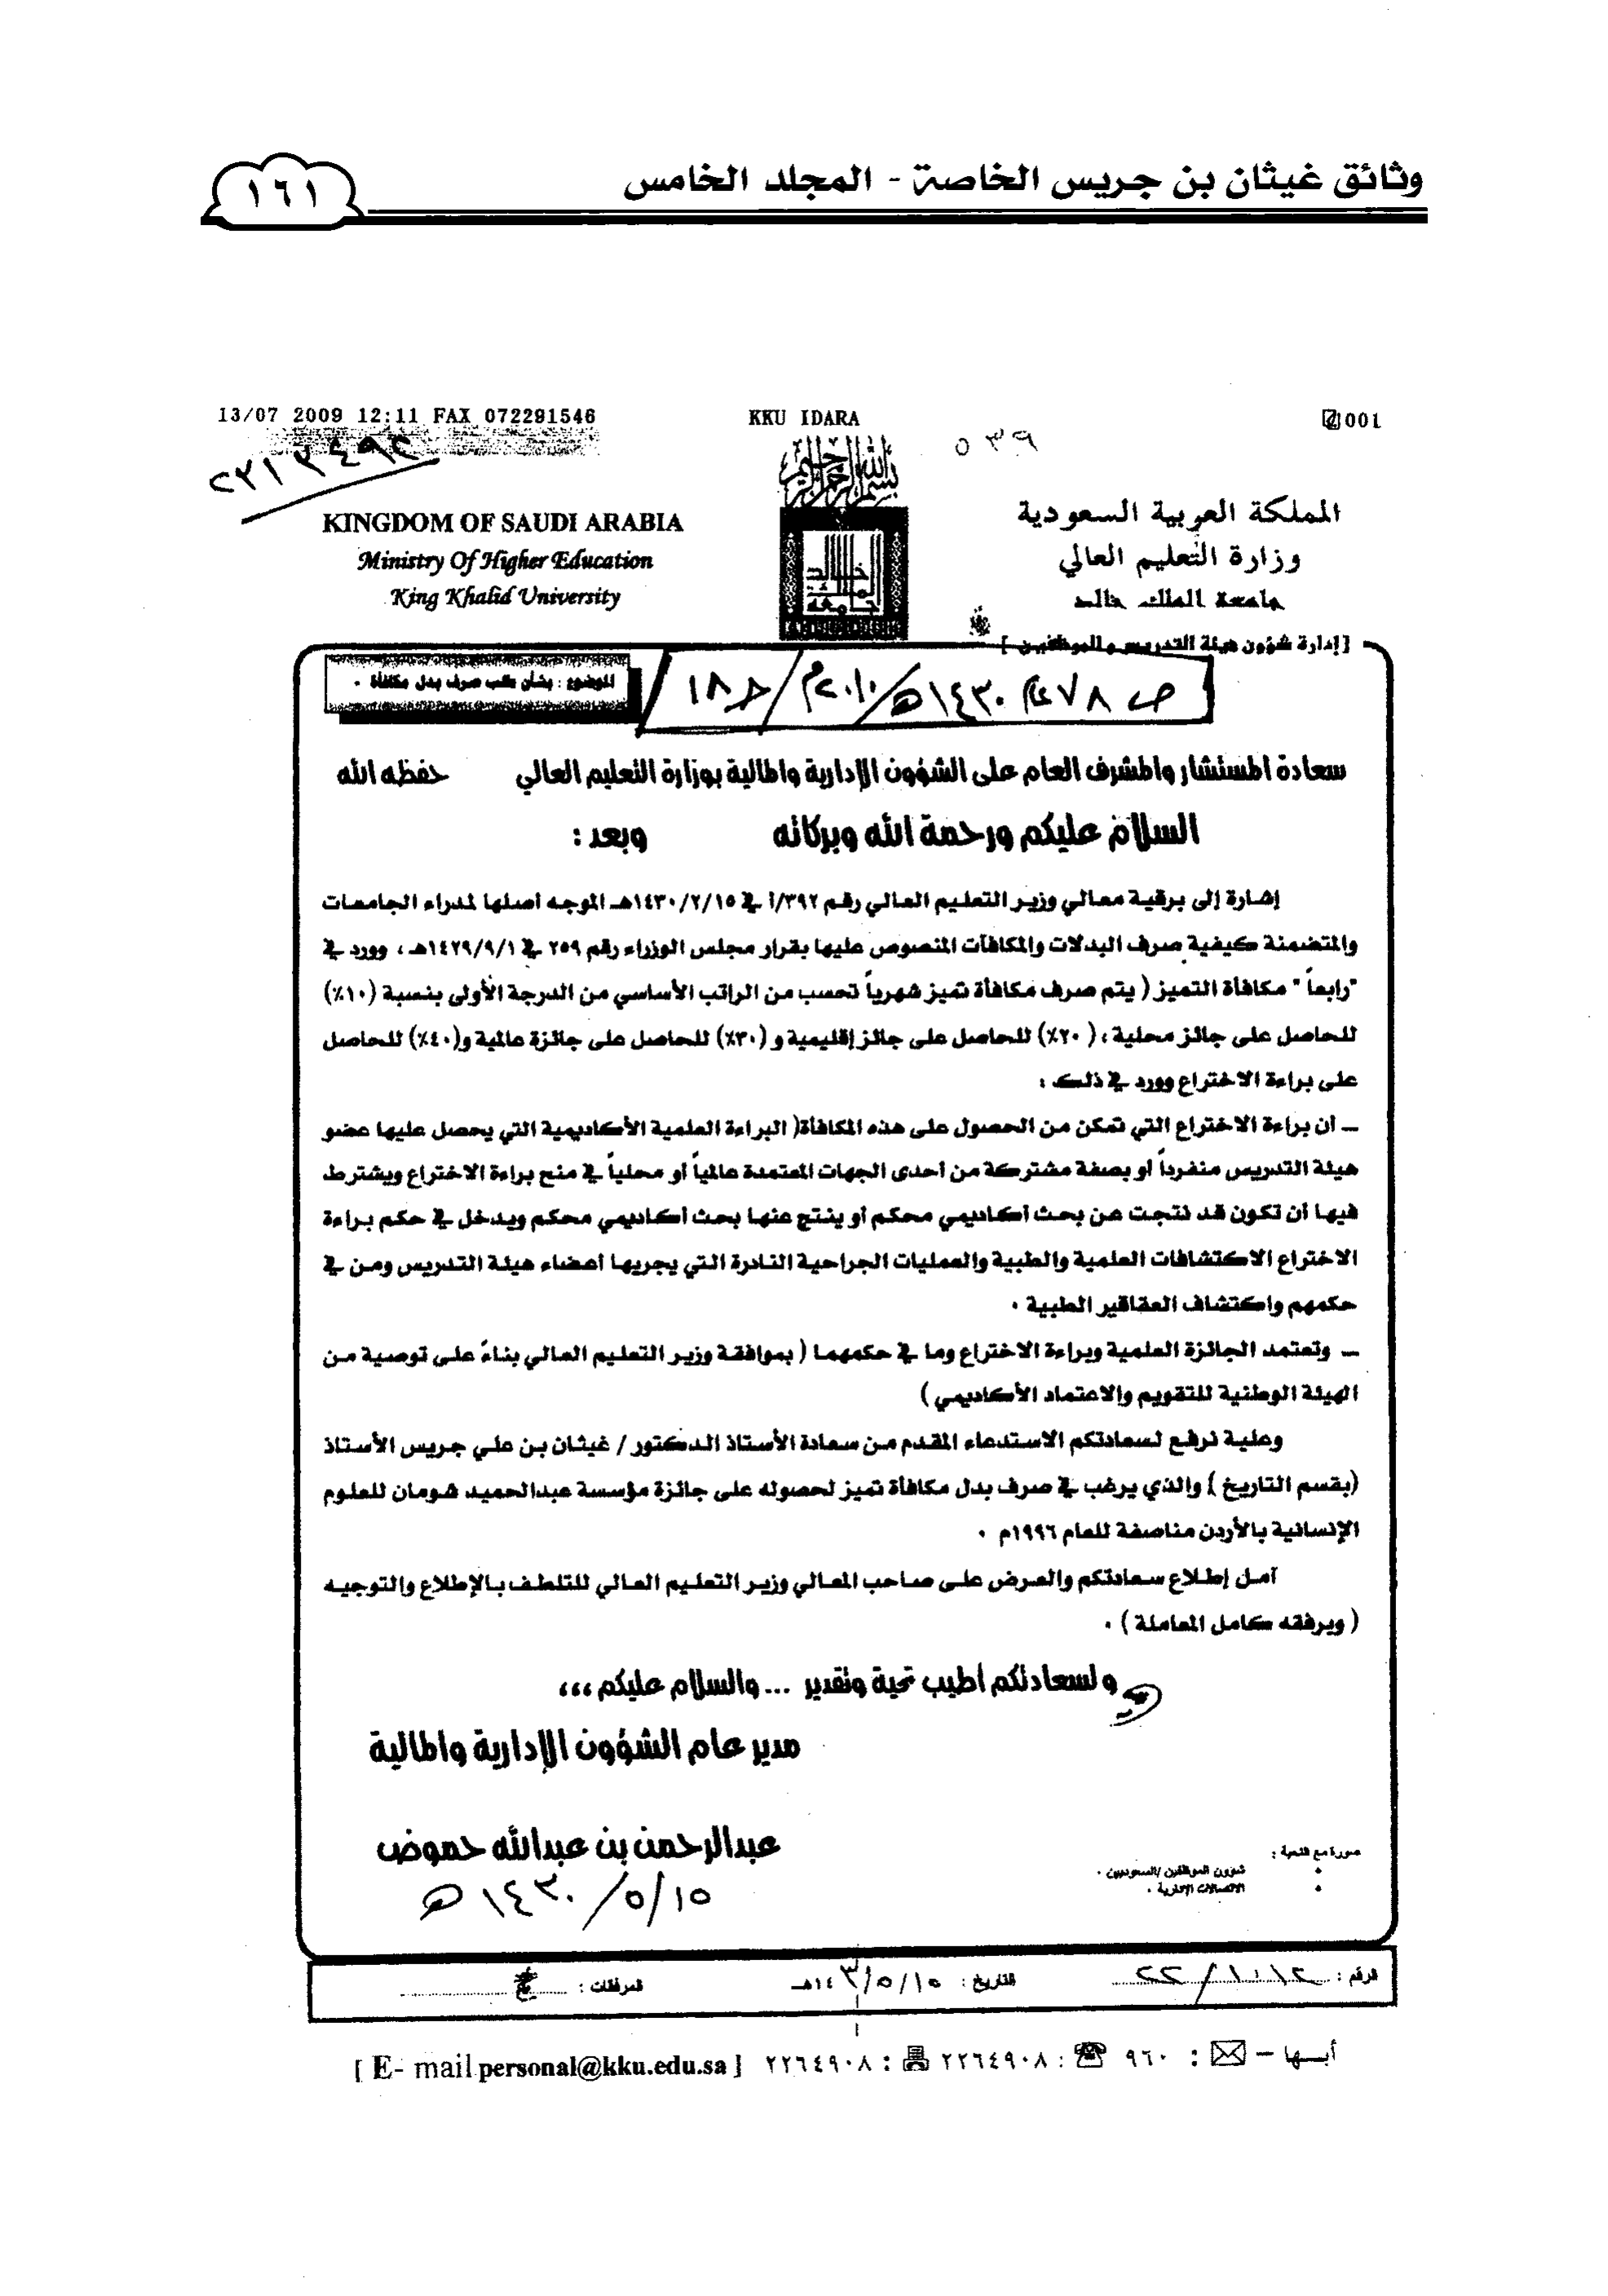 وثائق غيثان بن جريس الخاصة - المجلد الخامس
١٦١
13/07 2009 12:11 FAX 072291546
KKU IDARA
001
٥٣٩
المملكة العربية السعودية
وزارة التعليم العالي
جامعة الملك خالد
KINGDOM OF SAUDI ARABIA
Ministry Of Higher Education
King Khalid University
بسم الله الرحمن الرحيم
جامعة الملك خالد
[ إدارة شؤون هيئة التدريس والموظفين ]
الموضوع : بشأن طلب صرف بدل مكافأة .
سعادة المستشار والمشرف العام على الشؤون الإدارية والمالية بوزارة التعليم العالي حفظه الله
السلام عليكم ورحمة الله وبركاته وبعد :
إشارة إلى برقية معالي وزير التعليم العالي رقم ٣٩٢/أ في ١٤٣٠/٢/١٥هـ الموجه أصلها لمدراء الجامعات
والمتضمنة كيفية صرف البدلات والمكافآت المنصوص عليها بقرار مجلس الوزراء رقم ٢٥٩ في ١٤٢٩/٩/١هـ ، وورد في
"رابعاً" مكافأة التميز ( يتم صرف مكافأة تميز شهرياً تحسب من الراتب الأساسي من الدرجة الأولى بنسبة (١٠٪)
للحاصل على جائز محلية ، (٢٠٪) للحاصل على جائز إقليمية و (٣٠٪) للحاصل على جائزة عالمية و(٤٠٪) للحاصل
على براءة الاختراع وورد في ذلك :
_ أن براءة الاختراع التي تمكن من الحصول على هذه المكافأة( البراءة العلمية الأكاديمية التي يحصل عليها عضو
هيئة التدريس منفرداً أو بصفة مشتركة من أحدى الجهات المعتمدة عالمياً أو محلياً في منح براءة الاختراع ويشترط
فيها أن تكون قد نتجت عن بحث أكاديمي محكم أو ينتج عنها بحث أكاديمي محكم ويدخل في حكم براءة
الاختراع الاكتشافات العلمية والطبية والعمليات الجراحية النادرة التي يجريها أعضاء هيئة التدريس ومن في
حكمهم واكتشاف العقاقير الطبية .
_ وتعتمد الجائزة العلمية وبراءة الاختراع وما في حكمهما ( بموافقة وزير التعليم العالي بناءً على توصية من
الهيئة الوطنية للتقويم والاعتماد الأكاديمي )
وعلية نرفع لسعادتكم الاستدعاء المقدم من سعادة الأستاذ الدكتور / غيثان بن علي جريس الأستاذ
(بقسم التاريخ ) والذي يرغب في صرف بدل مكافأة تميز لحصوله على جائزة مؤسسة عبدالحميد شومان للعلوم
الإنسانية بالأردن مناصفة للعام ١٩٩٦م .
آمل إطلاع سعادتكم والعرض على صاحب المعالي وزير التعليم العالي للتلطف بالإطلاع والتوجيه
( ويرفقه كامل المعاملة ) .
ولسعادتكم أطيب تحية وتقدير ... والسلام عليكم ،،،
مدير عام الشؤون الإدارية والمالية
عبدالرحمن بن عبدالله حموض
١٥/٥/١٤٣٠هـ
صورة مع التحية :
شؤون الموظفين /السعوديين .
الاتصالات الإدارية .
الرقم : ٢٢/١٠١٢ التاريخ : ١٥/٥/١٤٣هـ المرفقات :
أبـها – : ٩٦٠ : ٢٢٦٤٩٠٨ : ٢٢٦٤٩٠٨ [ E- mail personal@kku.edu.sa ]